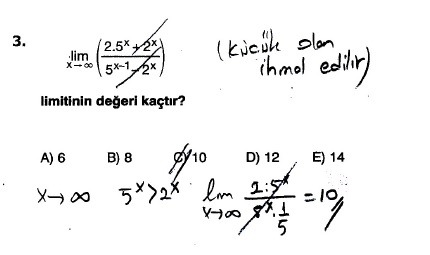 3.
lim x→∞ (2.5ˣ + 2ˣ / 5ˣ⁻¹ - 2ˣ)
(Küçük olan
ihmal edilir)
limitinin değeri kaçtır?
A) 6 B) 8 C) 10 D) 12 E) 14
x→∞ 5ˣ>2ˣ lim x→∞ 2.5ˣ / 5ˣ.1/5 = 10